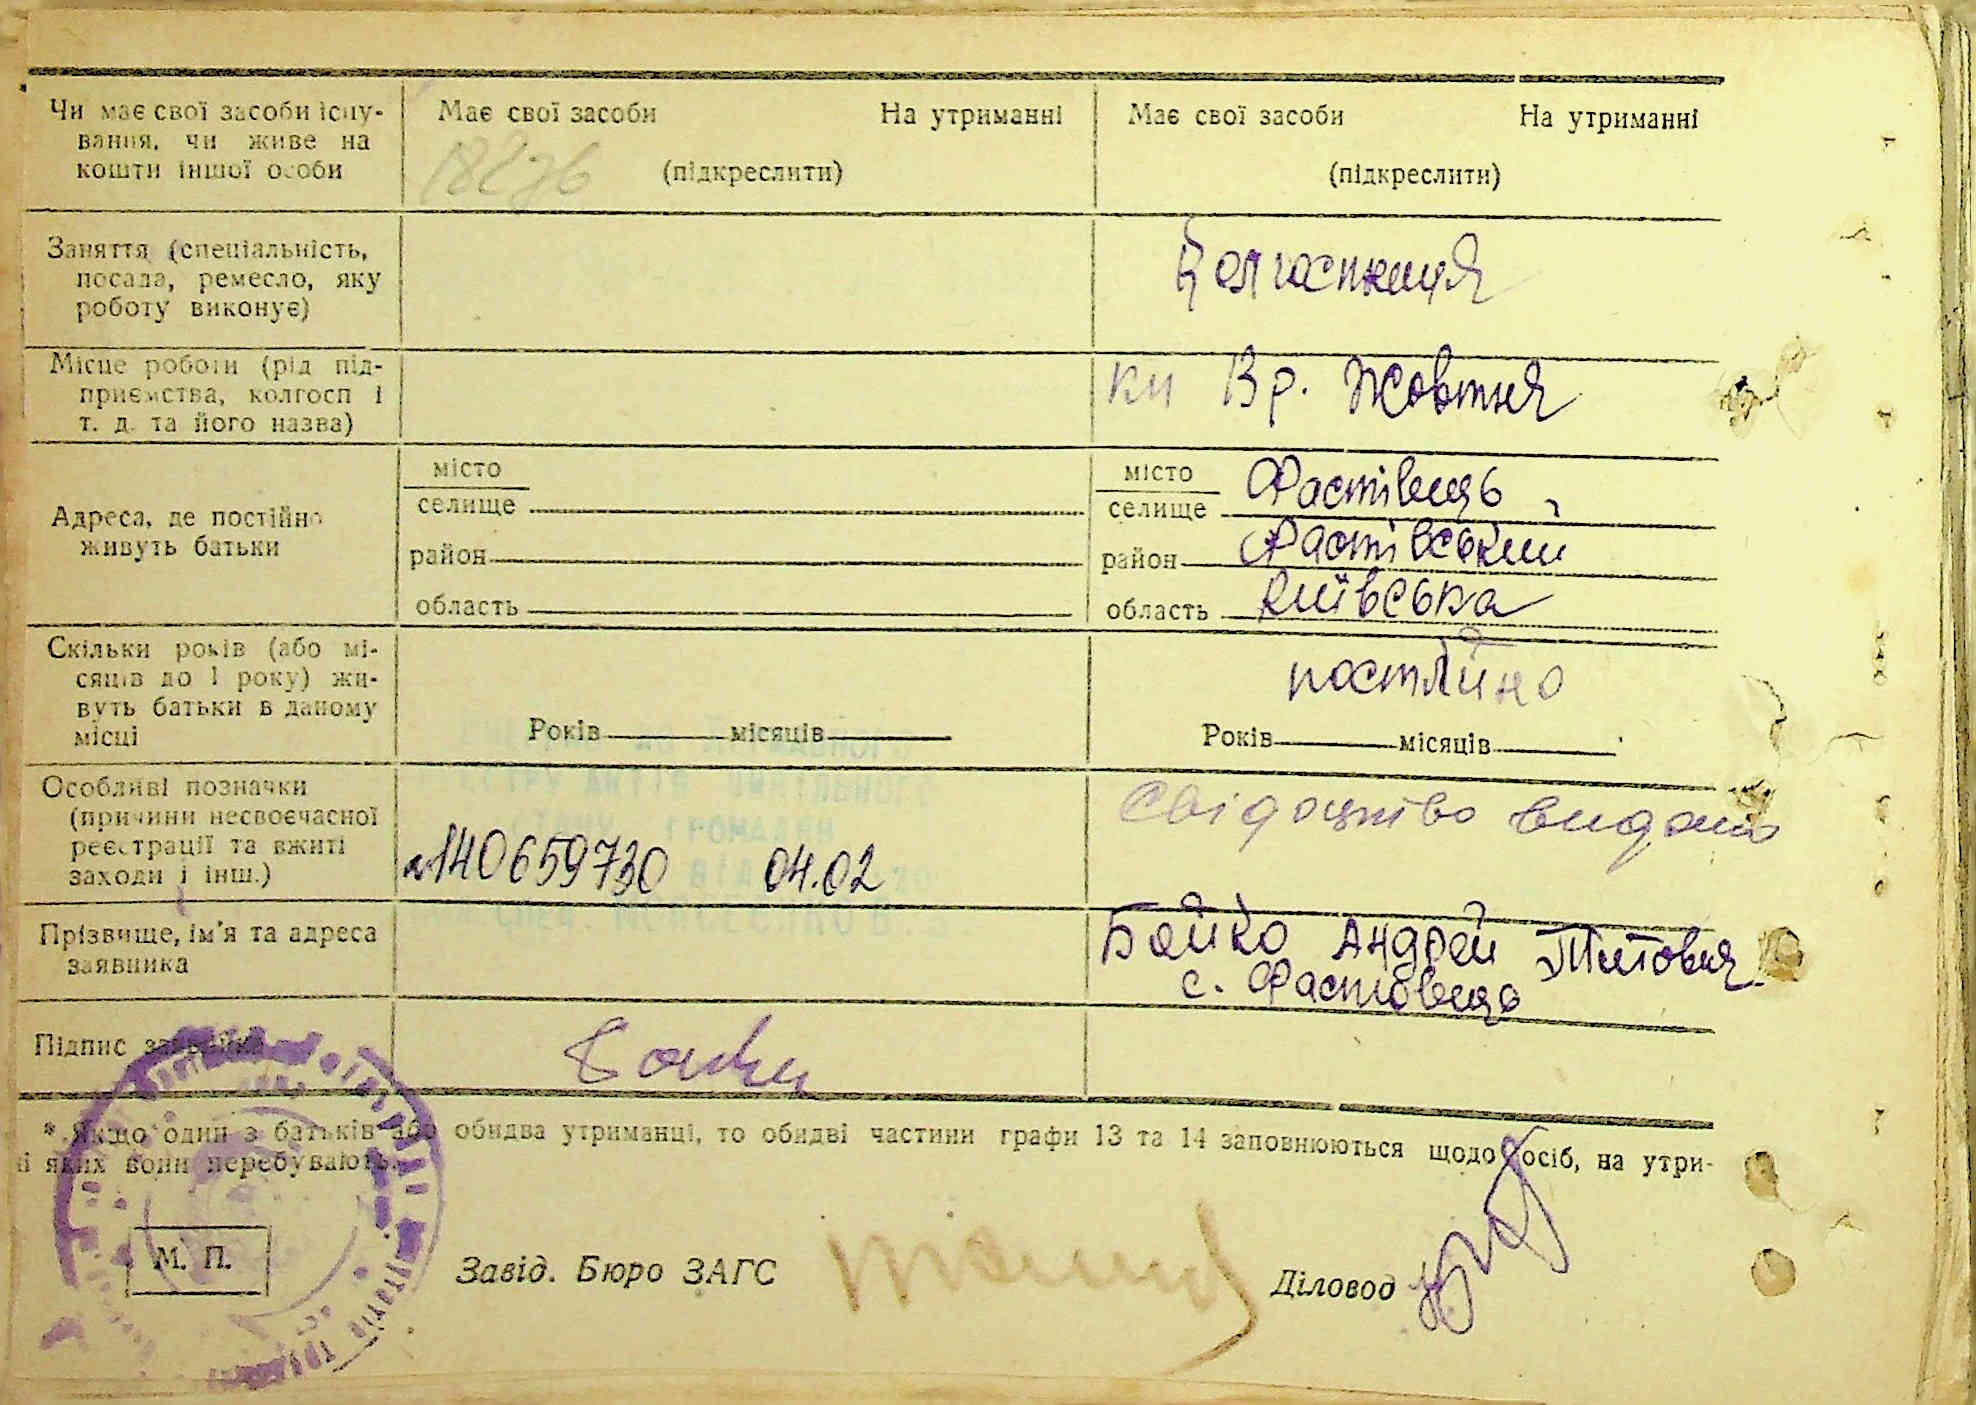 Чи має свої засоби існу-
вання, чи живе на
кошти іншої особи
Має свої засоби На утриманні
(підкреслити)
Має свої засоби На утриманні
(підкреслити)
Заняття (спеціальність,
посада, ремесло, яку
роботу виконує)
Колгоспниця
Місце роботи (рід під-
приємства, колгосп і
т. д. та його назва)
Жовтня
Адреса, де постійно
живуть батьки
місто
селище
район
область
місто
селище Фастівець,
район Фастівський
область Київська
Скільки років (або мі-
сяців до 1 року) жи-
вуть батьки в даному
місці
Років місяців
постійно
Років місяців
Особливі позначки
(причини несвоєчасної
реєстрації та вжиті
заходи і інш.)
140659730 04.02
Свідоцтво видано
Прізвище, ім'я та адреса
заявника
Бойко Андрей Титович
с. Фастовець
Підпис заявника
Бойко
* Якщо один з батьків або обидва утриманці, то обидві частини графи 13 та 14 заповнюються щодо осіб, на утри-
і яких вони перебувають.
М. П.
Завід. Бюро ЗАГС
Діловод